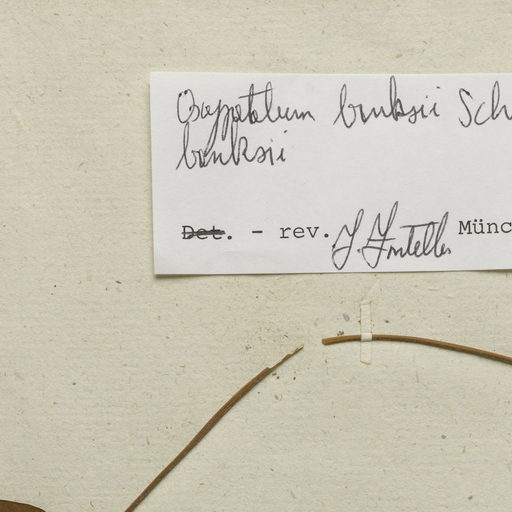 Oxypetalum banksii Sch
banksii
Det. - rev. J. Fontella Münc